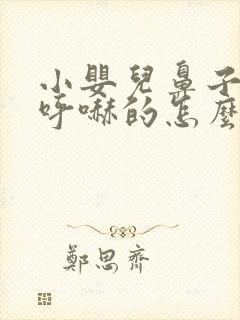 小嬰兒鼻子
呼嚇的怎麼
鄭思齊